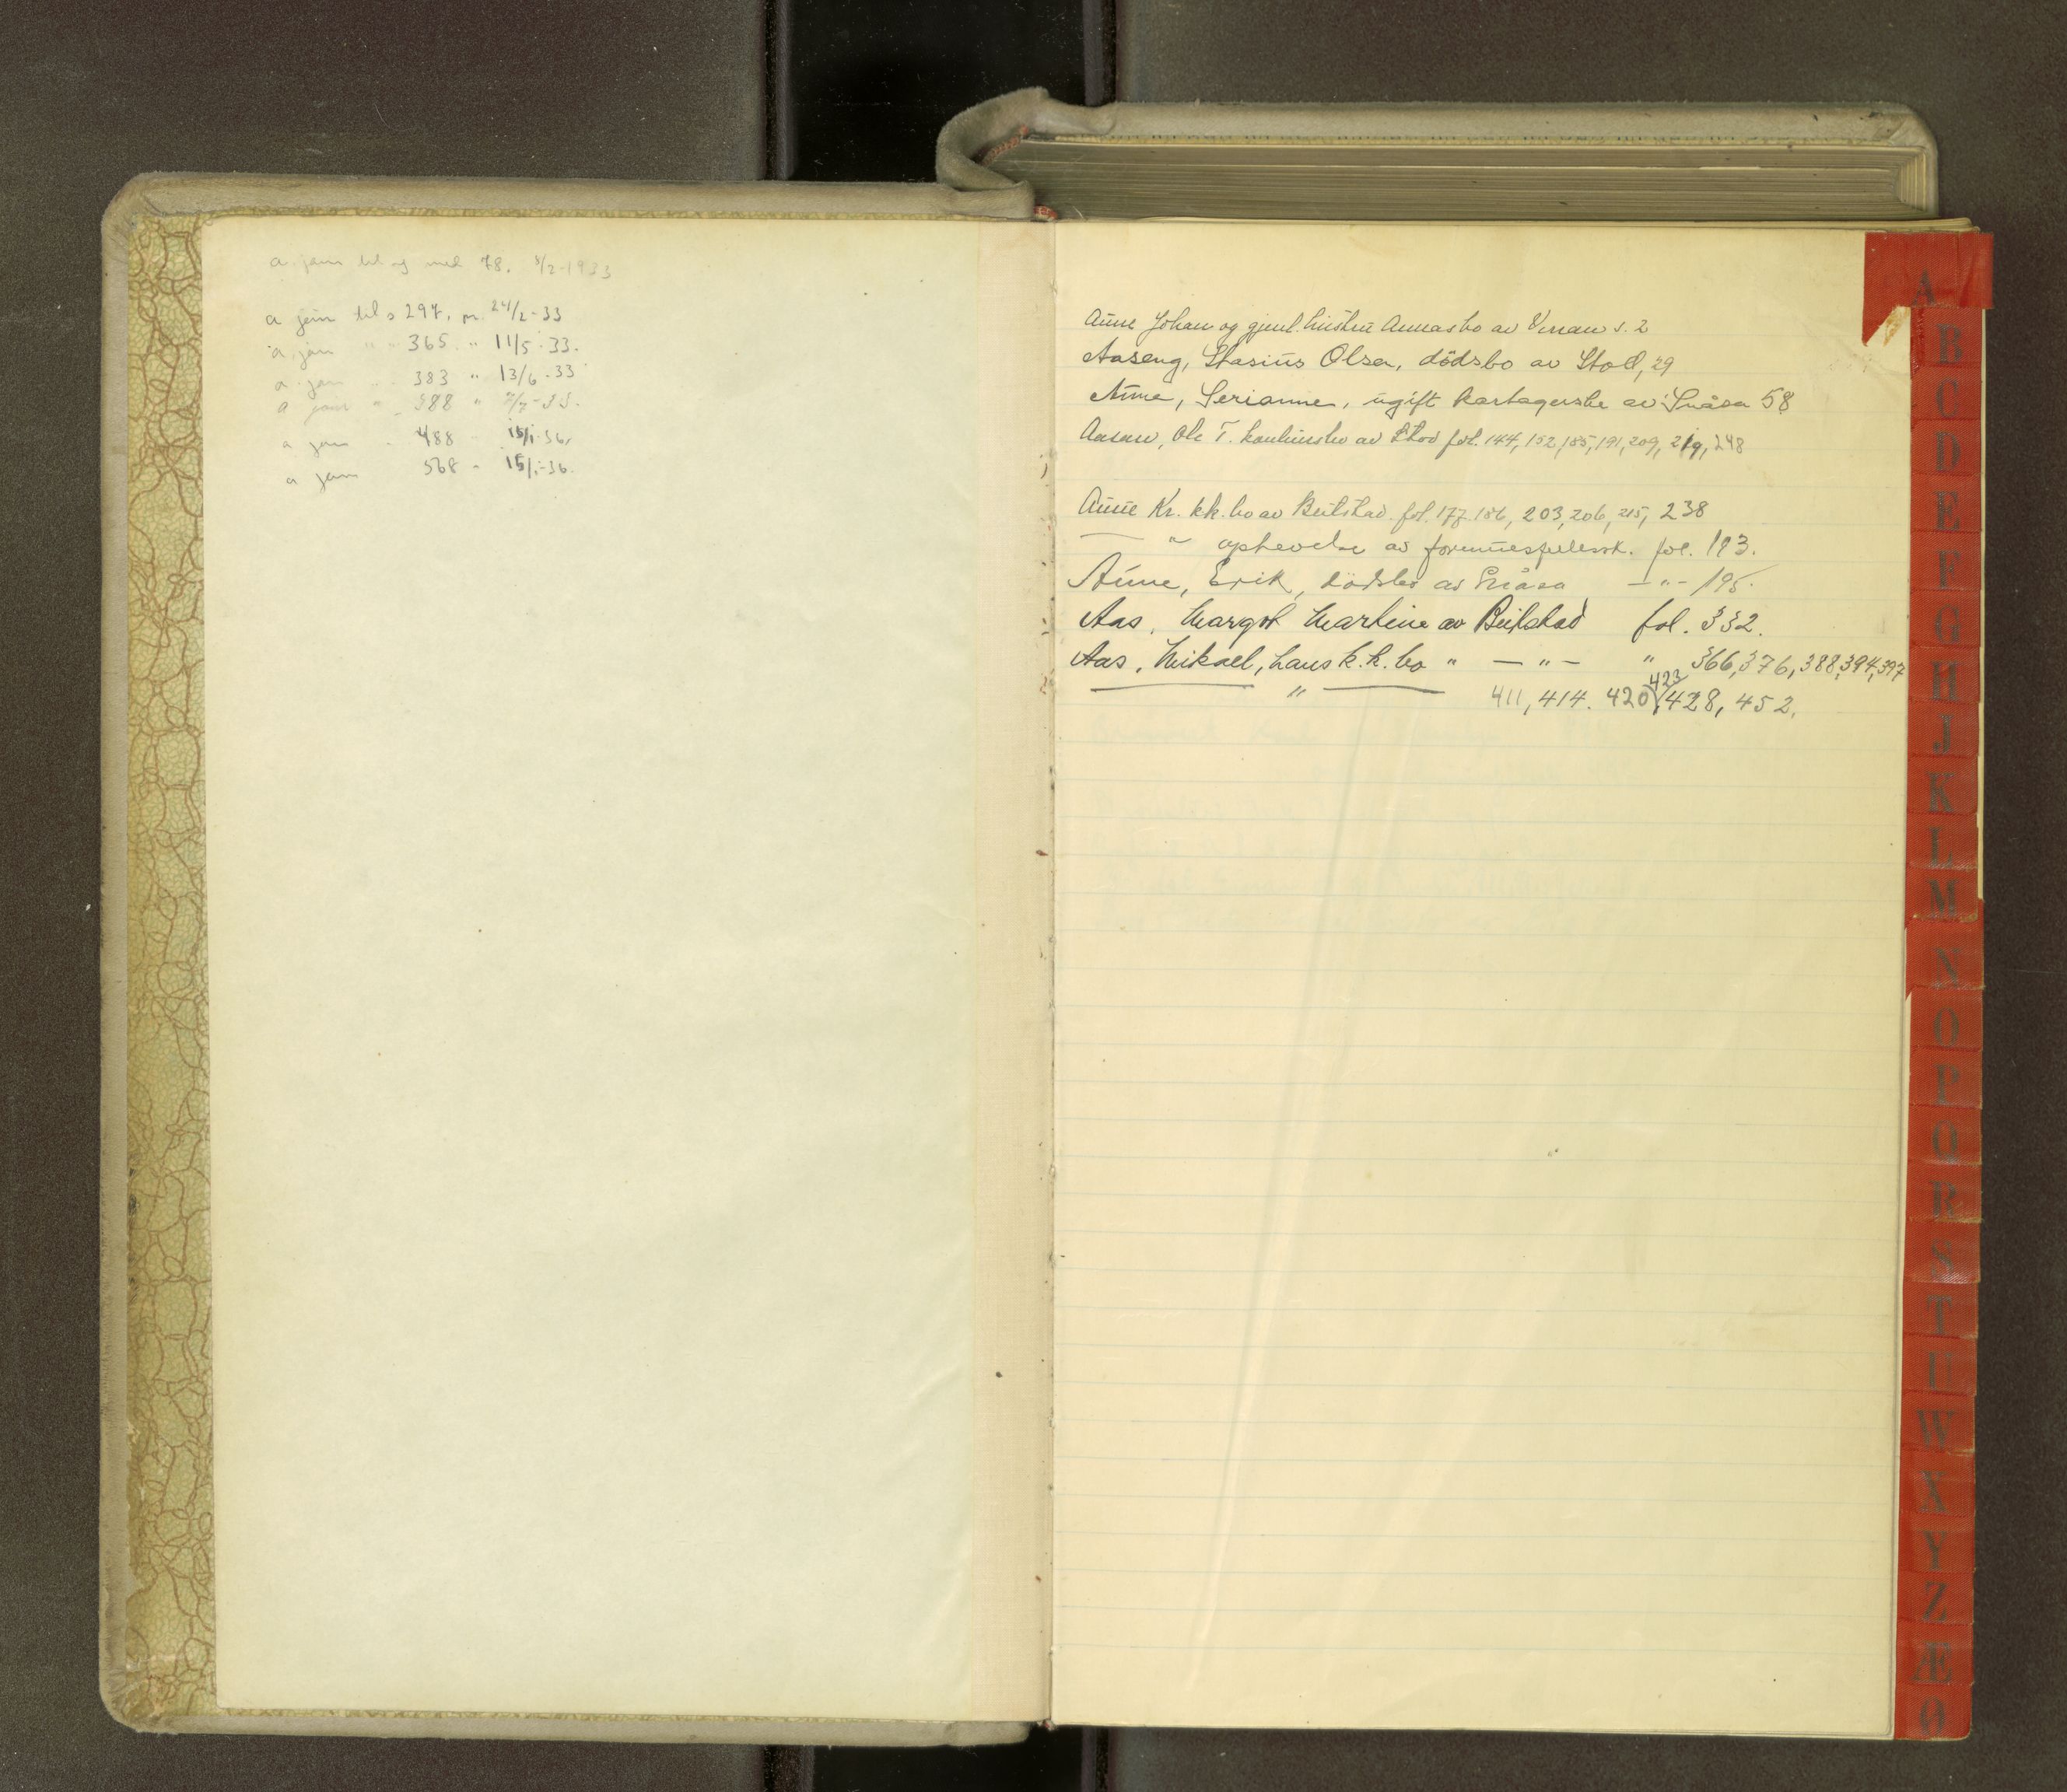 a jam til og med 78. 8/2-1933
a jam til s 297, pr. 24/2-33
a jam " " 365. " 11/5-33.
a jam " 383 " 13/6-33
a jam " 388 " 7/7-33.
a jam - 488 - 15/1-36.
a jam 568 - 15/1-36.
Aune Johan og gjenl. hustru Annas bo av Verran s. 2
Aaseng, Stasius Olsen, dödsbo av Stod, 29
Aune, Serianne, ugift av Snåsa 58
Ole T. konkursbo av Stod fol. 144, 152, 185, 191, 209, 219, 248
Aune Kr. kk. bo av Beitstad fol. 177, 186, 203, 206, 215, 238
— " ophevelse av formuesfellessk. fol. 193.
Aune, Erik, dödsbo av Snåsa — " - 195.
Aas, Margot Martine av Beitstad fol. 332.
Aas, Mikael, hans k.k. bo " — " — " 366, 376, 388, 394, 397
— " — 411, 414. 420, 423, 428, 452.
A
B
C
D
E
F
G
H
J
K
L
M
N
O
P
Q
R
S
T
U
W
X
Y
Z
Æ
Ø